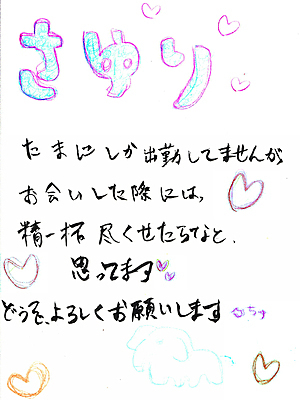 さゆり
たまにしか出勤してませんが
お会いした際には、
精一杯尽くせたらなと、
思ってます
どうぞ、よろしくお願いします